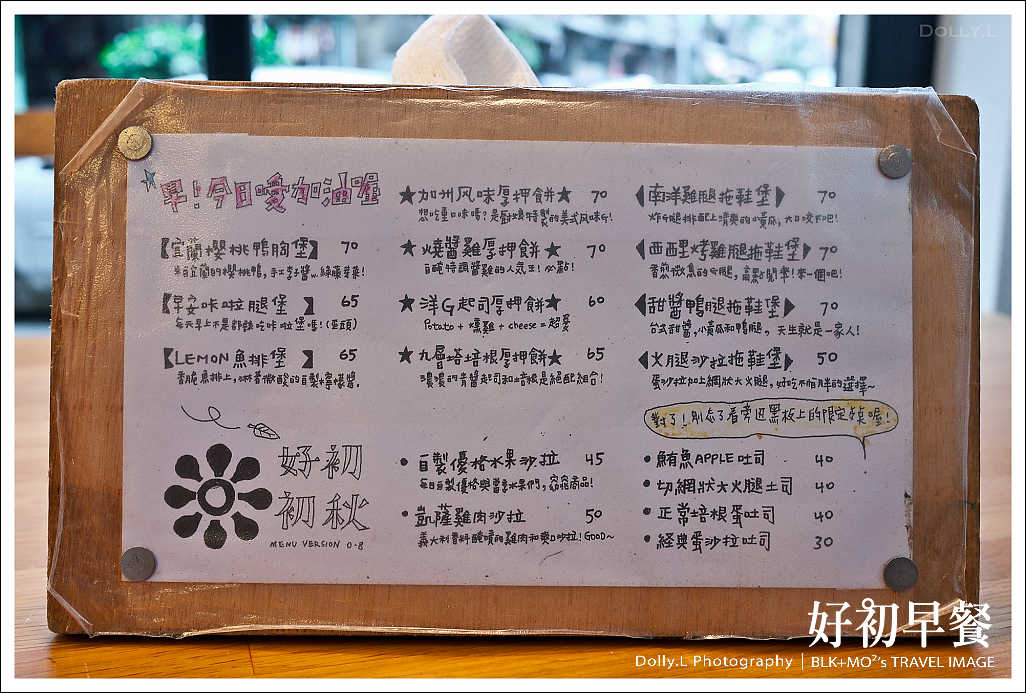 DOLLY.L
早!今日嗳加油喔
【宜蘭櫻桃鴨胸堡】 70
來自宜蘭的櫻桃鴨,手工李子醬w.綠藤芽菜!
【早安咔啦腿堡】 65
每天早上不是都該吃咔啦堡嗎!(歪頭)
【LEMON魚排堡】 65
香脆魚排上,淋著微酸的自製檸檬醬。
好初
初秋
MENU VERSION 0-8
★加州风味厚押餅★ 70
想吃重口味嗎?是廚娘特製的美式风味!
★燒醬雞厚押餅★ 70
自醃特調醬雞的人氣王!必點!
★洋G起司厚押餅★ 60
Potato + 燻雞 + cheese = 超愛
★九層塔培根厚押餅★ 65
濃濃的青醬起司和培根是絕配組合!
• 自製優格水果沙拉 45
每日自製優格與當季水果們,窈窕商品!
• 凱薩雞肉沙拉 50
義大利香料醃漬的雞肉和爽口沙拉!GOOD~
◀南洋雞腿拖鞋堡▶ 70
炸G腿排配上清爽的小黃瓜,大口咬下吧!
◀西西里烤雞腿拖鞋堡▶ 70
香煎微焦的G腿,高點開幸!來一個吧!
◀甜醬鴨腿拖鞋堡▶ 70
台式甜醬,小黃瓜和鴨腿,天生就是一家人!
◀火腿沙拉拖鞋堡▶ 50
蛋沙拉加上網狀大火腿,好吃不怕胖的選擇~
對了!別忘了看旁边黑板上的限定餐桌喔!
• 鮪魚APPLE吐司 40
• 切網狀大火腿土司 40
• 正常培根蛋吐司 40
• 經典蛋沙拉吐司 30
好初早餐
Dolly.L Photography | BLK+MO²'s TRAVEL IMAGE